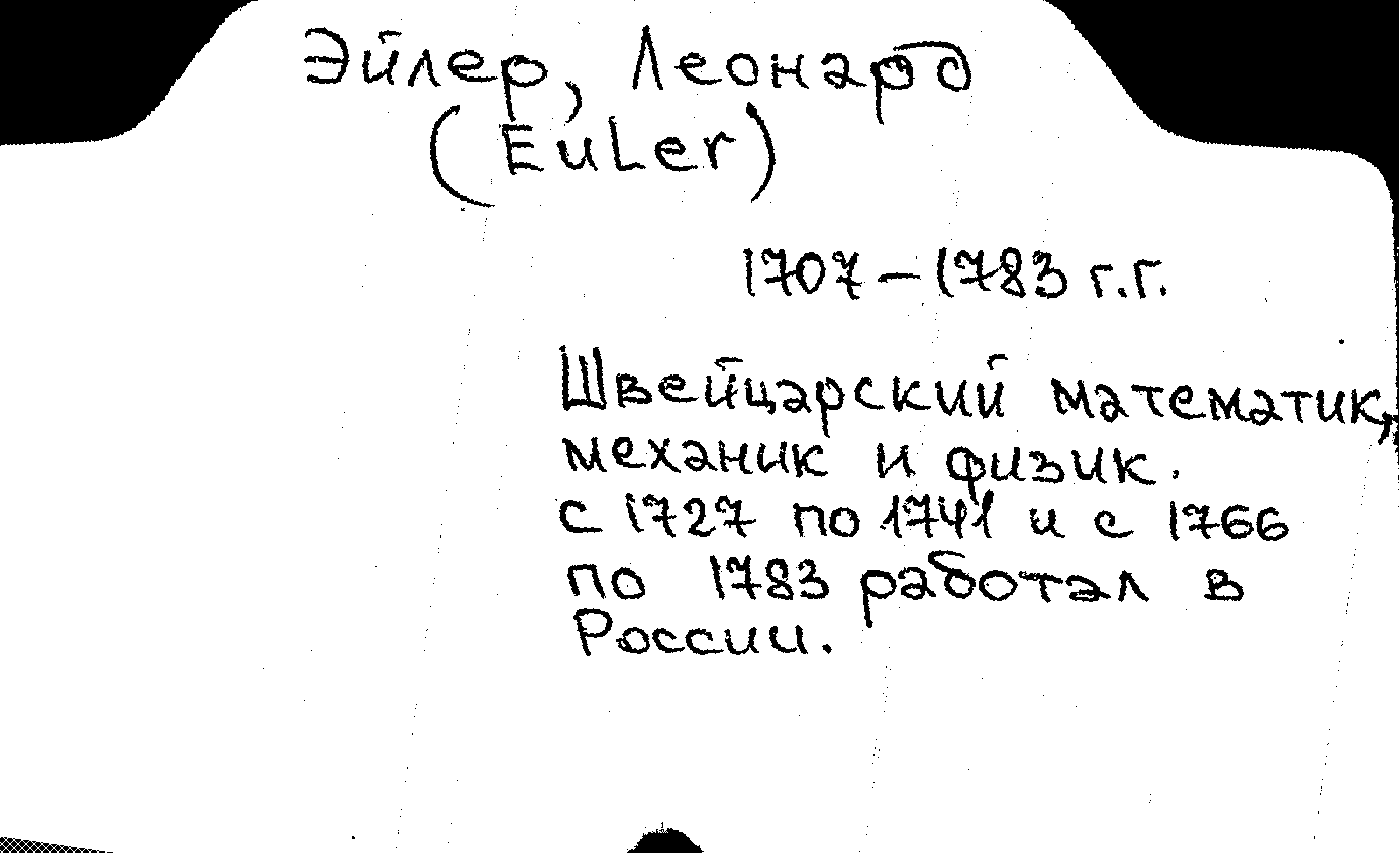 Эйлер, Леонард
(Euler)
1707 – 1783 г.г.
Швейцарский математик,
механик и физик.
с 1727 по 1741 и с 1766
по 1783 работал в
России.